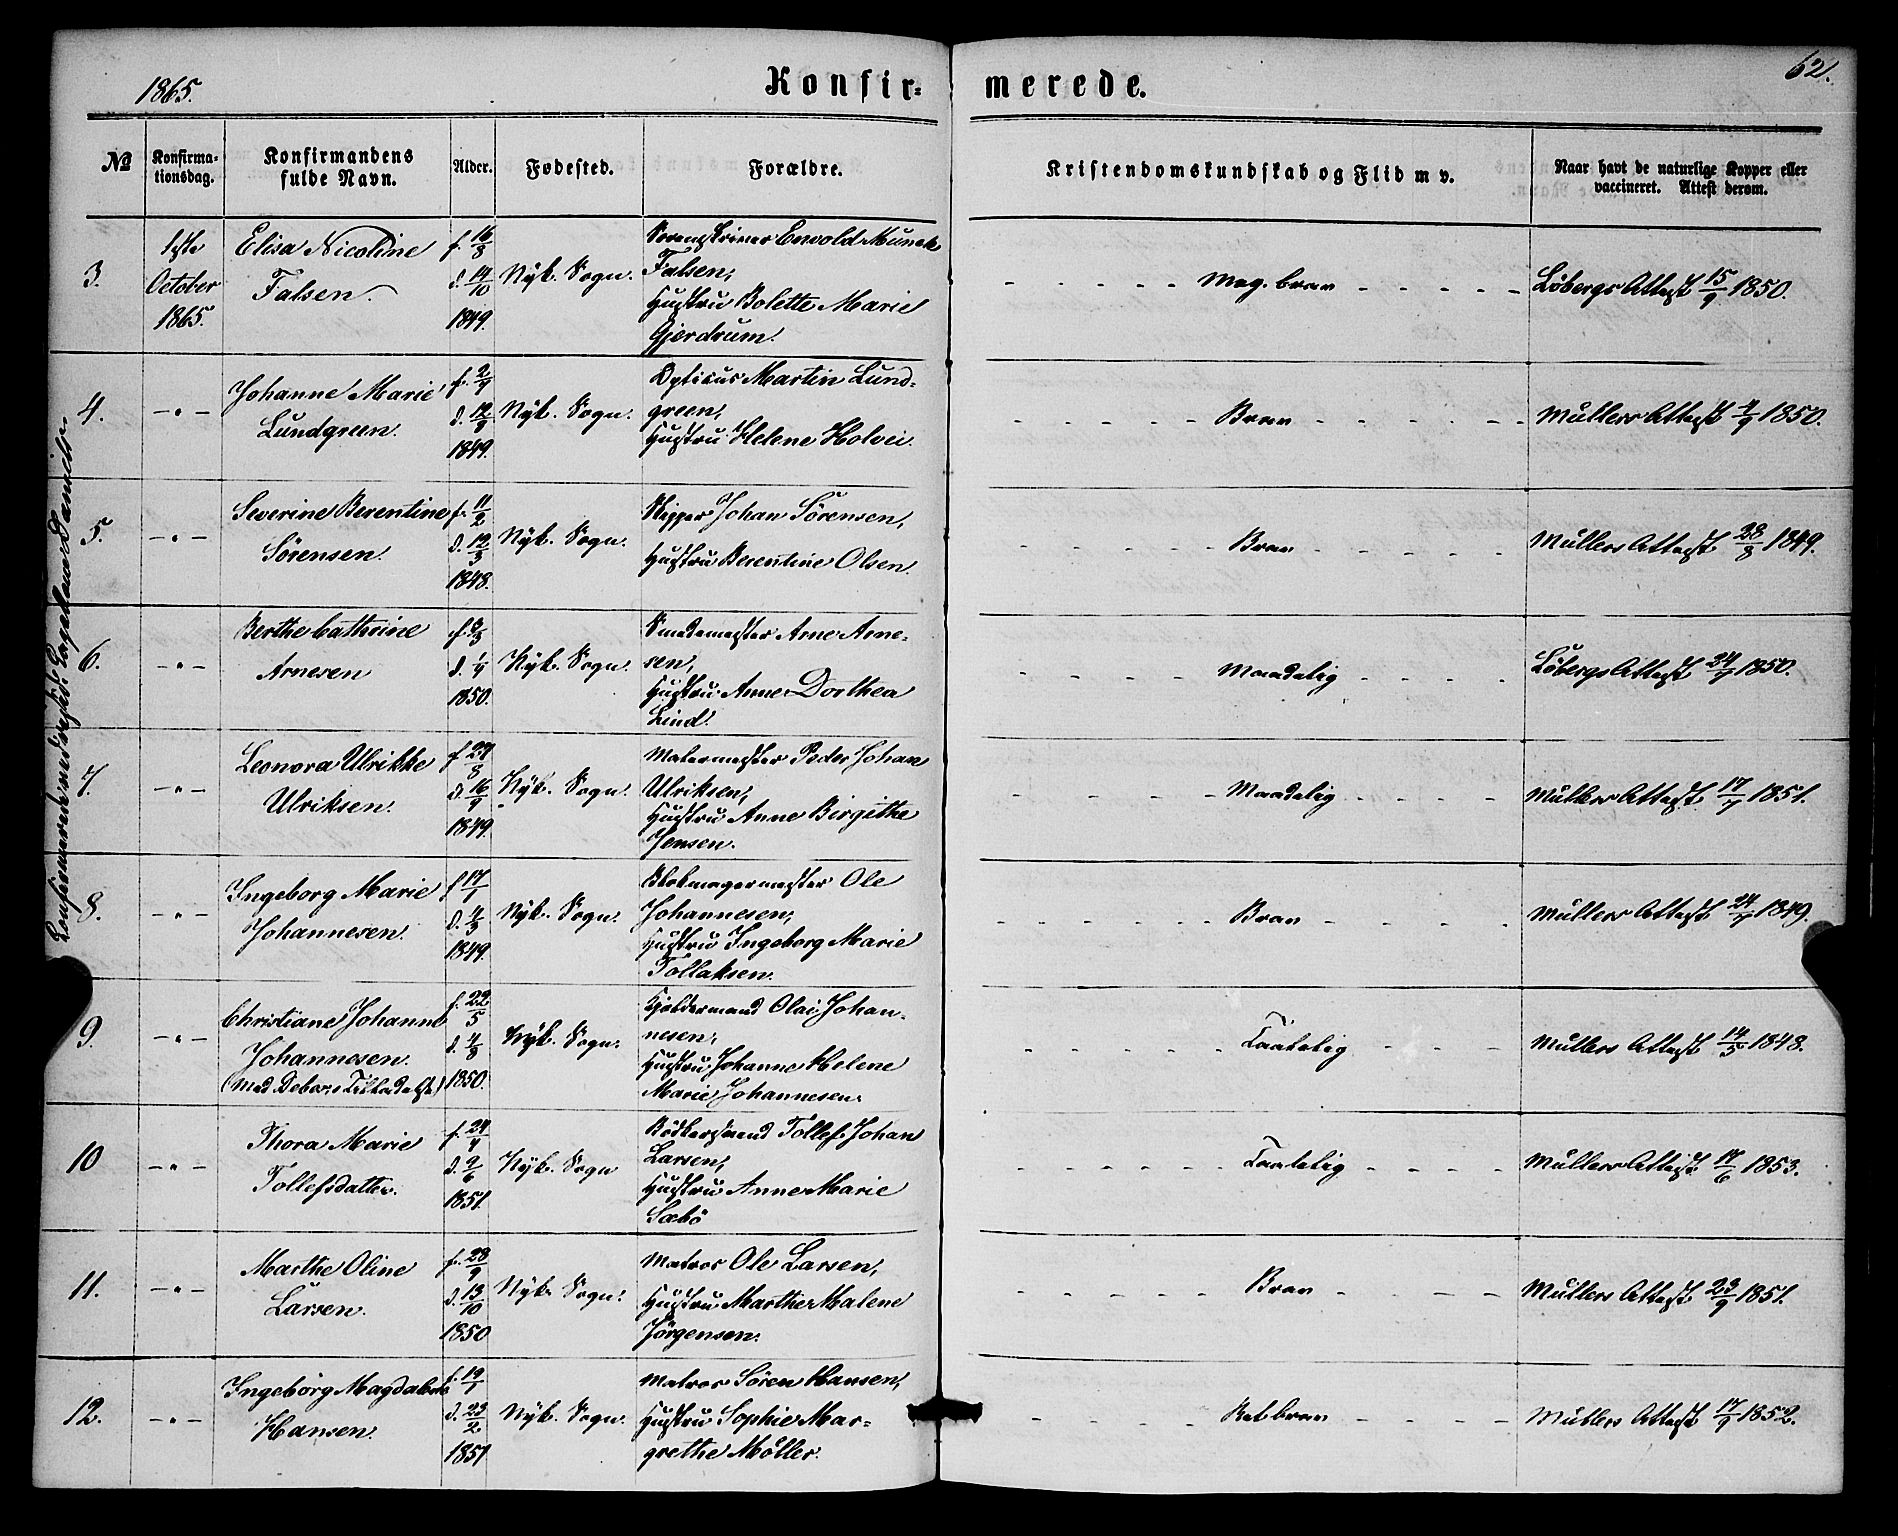 1865.
Konfir=
merede.
62.
№
Konfirma-
tionsdag.
Konfirmandens
fulde Navn.
Alder.
Fødested.
Forældre.
Kristendomskundskab og Flid m v.
Naar havt de naturlige Kopper eller
vaccineret. Attest derom.
3.
1ste
October
1865.
Elisa Nicoline
Falsen.
f. 16/8
d. 14/10
1849.
Nyk. Sogn.
Sorenskriver Enevold Munch
Falsen,
Hustru Bolette Marie
Gjerdrum.
Meg. bran
Löbergs Attest 15/9 1850.
4.
-"-
Johanne Marie
Lundgreen.
f. 2/9
d. 12/9
1849.
Nyk. Sogn.
Opticus Martin Lund=
green,
Hustru Helene Holvei.
Bran
Müllers Attest 4/9 1850.
5.
-"-
Severine Berentine
Sörensen.
f. 11/2
d. 12/3
1848.
Nyk. Sogn.
Skipper Johan Sörensen,
Hustru Berentine Olsen.
Bran
Müllers Attest 28/8 1849.
6.
-"-
Berthe Cathrine
Arnesen
f. 3/3
d. 1/4
1850.
Nyk. Sogn.
Smedemester Arne Arne-
sen,
Hustru Anne Dorthea
Lind.
Maadelig
Löbergs Attest 24/7 1850.
7.
-"-
Leonora Ulrikke
Ulriksen.
f. 27/8
d. 16/9
1849.
Nyk. Sogn.
Malermester Peder Johan
Ulriksen,
Hustru Anne Birgithe
Jensen.
Maadelig
Müllers Attest 17/7 1851.
8.
-"-
Ingeborg Marie
Johannesen.
f 17/1
d. 4/3
1849.
Nyk. Sogn.
Blokmagermester Ole
Johannesen,
Hustru Ingeborg Marie
Tollaksen.
Bran
Müllers Attest 24/7 1849.
9.
-"-
Christiane Johanne
Johannesen.
(med Tilladelse)
f. 22/5
d. 4/8
1850.
Nyk. Sogn.
Olai Johan-
nesen,
Hustru Johanne Helene
Marie Johannesen.
Taalelig
Müllers Attest 14/5 1848.
10
-"-
Thora Marie
Tollefsdatter.
f. 24/4
d. 9/6
1851.
Nyk. Sogn
Bödkersvend Tollef Johan
Larsen,
Hustru Anne Marie
Sæbö
Taalelig
Müllers Attest 17/6 1853.
11.
-"-
Marthe Oline
Larsen.
f. 28/9
d. 13/10
1850
Nyk. Sogn.
Matros Ole Larsen,
Hustru Marthe Malene
Jörgensen.
Bran
Müllers Attest 23/9 1851.
12.
-"-
Ingeborg Magdalene
Hansen.
f. 19/1
d. 23/2
1851
Nyk. Sogn.
Matros Sören Hansen,
Hustru Sophie Mar=
grethe Möller.
Ret bran
Müllers Attest 17/9 1852.